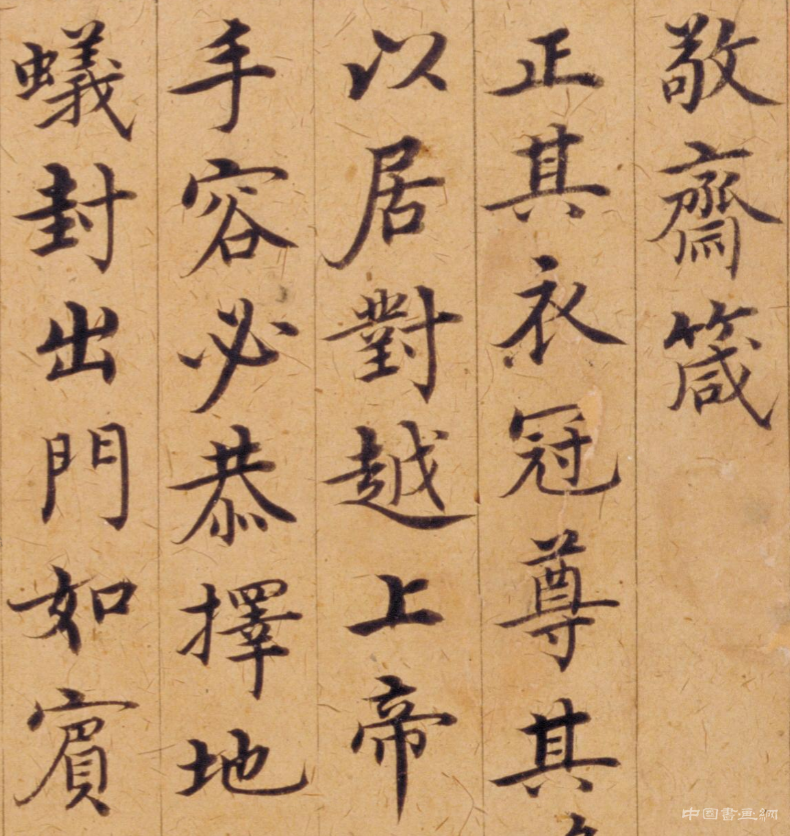 敬齋箴
正其衣冠尊其
以居對越上帝
手容必恭擇地
蟻封出門如賓
中国書画網